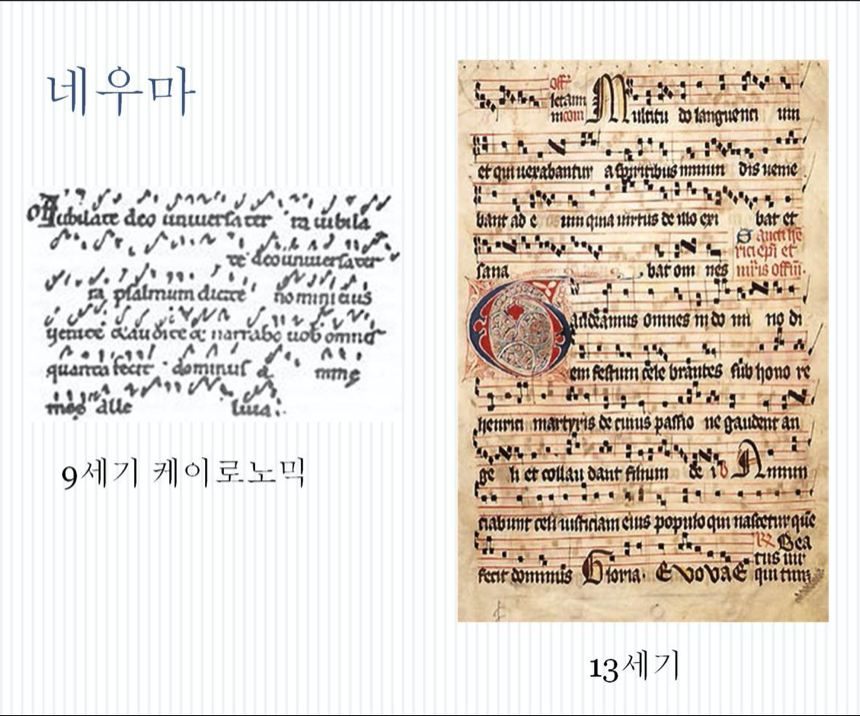 네우마
Jubilate deo universa ter ra iubila
te deo universa ter
ra psalmum dicite nomini eius
venite & audite & narrabo vob omnis
quanta fecit dominus
alle luia
9세기 케이로노믹
off
letam
Multitu do languenti um
et qui vexabantur a spiritibus inmun dis venie
bant ad e um quia virtus de illo exi bat et
sana bat om nes
Gaudeamus omnes in do mi no di
em festum cele brantes sub hono re
henrici martyris de cuius passio ne gaudent an
ge li et collau dant filium de i Annun
ciabunt celi iusticiam eius populo qui nascetur que
fecit dominus Gloria. EVOVAE
Bea
tus vir
qui tim
13세기